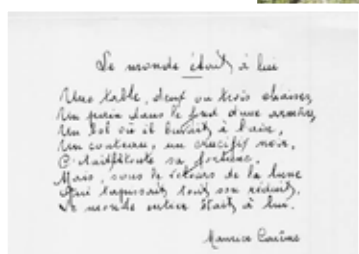 Le monde était à lui
Une table, deux ou trois chaises,
Un pain dans le fond d'une armoire,
Un bol où il buvait à l'aise,
Un couteau, un crucifix noir,
C'était toute sa fortune.
Mais, sous le velours de la lune
Qui tapissait tout son réduit,
Le monde entier était à lui.
Maurice Carême